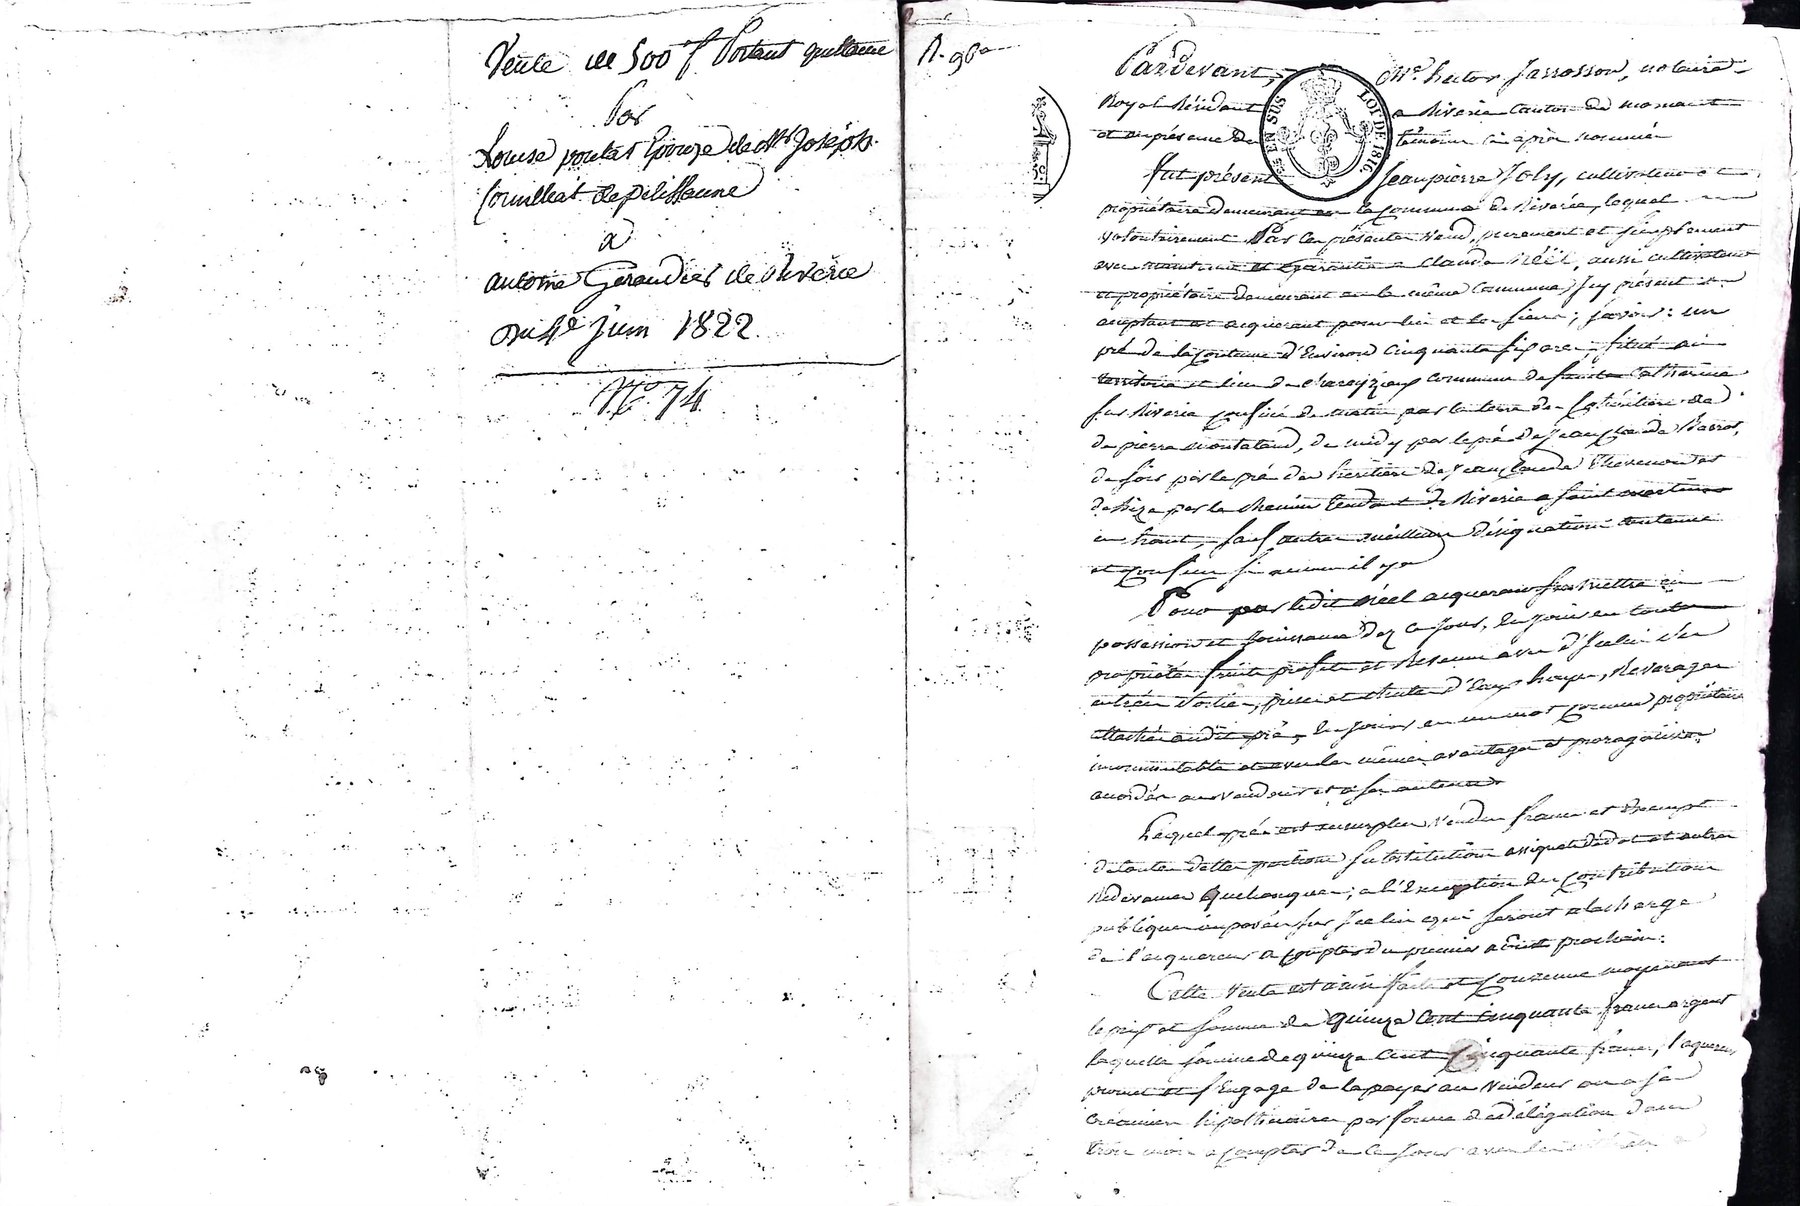 Vente de 500 f Portant quittance
Par
Louise poulat Epouze de Mth Joseph
Couilleat de pelissanne
a
antoine Geraudier de Riverie
Du 4e Juin 1822
No. 74
Pardevant, Me. hector Jarrosson, notaire
Royal Résidant a Riverie Canton de mornant
et en présence des témoins ci après nommés
EN SUS
LOI DE 1816
fut présent Jean pierre Joly, cultivateur et
propriétaire demeurant en la Commune de Riverie, lequel
volontairement Par ces présentes vend, purement et simplement
avec maintenue et Garantie a Claude Réél, aussi cultivateur
et propriétaire demeurant en la même Commune Icy présent et
acceptant et acquerant pour lui et les siens; savoir: un
pré de la Contenue d'Environ Cinquante six ares, situé au
territoire et lieu de Commune de sainte Catherine
sur Riverie Confiné de matin par la terre des héritiers de
de pierre montaland, de midy par le pré de Jean Claude
de soir par le pré des heritiers de Jean Claude Thevenon et
de Bize par le Chemin tendant de Riverie a saint martin
en haut, sauf autres meilleure désignations contenue
et Confins si aucun il y a
Pour par ledit Réel acquereur se mettre en
possession et jouissance dez ce jour, en jouir en toute
propriétés fruits profits et Revenus avec d'Icelui ses
entrées sorties, prises et chute d'Eaux hayes,
attachés audit pré, en jouir en un mot Comme propriétaire
incommutable et avec les mêmes avantages et prérogatives
accordés au vendeur et a ses auteurs
Lequel pré est au surplus vendu franc et Exempt
de toutes dettes pentions substitutions et autres
Redevances quelconques; a l'Exception des Contributions
publiques imposées sur Icelui qui seront a la charge
de l'acquereur a Compter du premier prochain:
Cette vente est ainsi faite et Convenue moyennant
le prix et somme de quinze Cent Cinquante francs argent
laquelle somme de quinze Cent Cinquante francs, l'acquereur
promet et s'Engage de la payer au vendeur ou a ses
Créanciers hipothécaires par forme de délégation dans
trois mois a Compter de ce jour avec